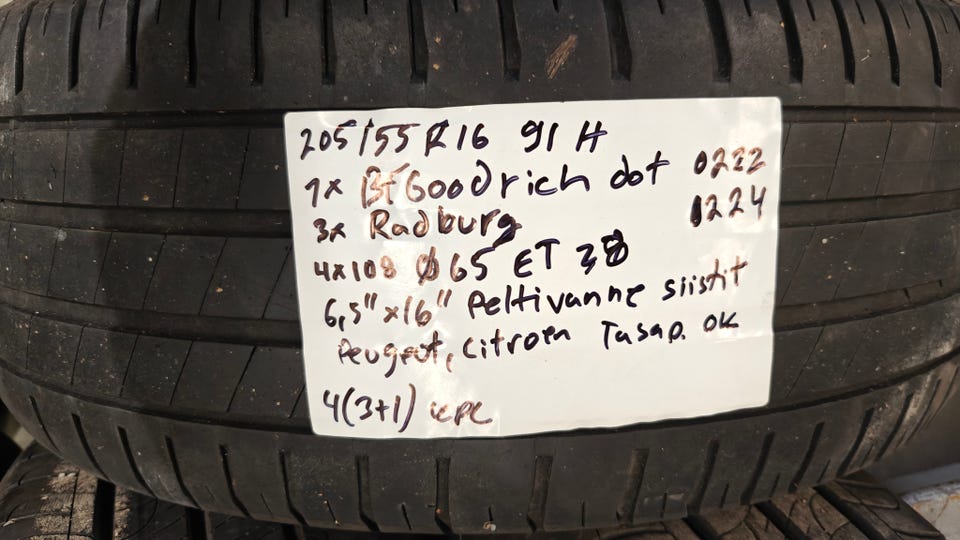 205/55 R16 91 H
1x BFGoodrich dot 0222
3x Radburg 1224
4x108 Ø65 ET 38
6,5"x16" Peltivanne siistit
Peugeot, Citroen Tasap. ok
4(3+1) KPL